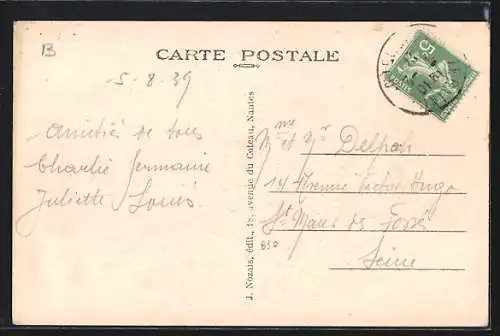 B
CARTE POSTALE
5.8.39
Amitiés de tous
Charlie Germaine
Juliette Louis
J. Nozais, édit., 18, avenue du Coteau, Nantes
Mme et Mr Delpech
14 Avenue Victor Hugo
St Maur des Fossés
B30
Seine
5
POSTE